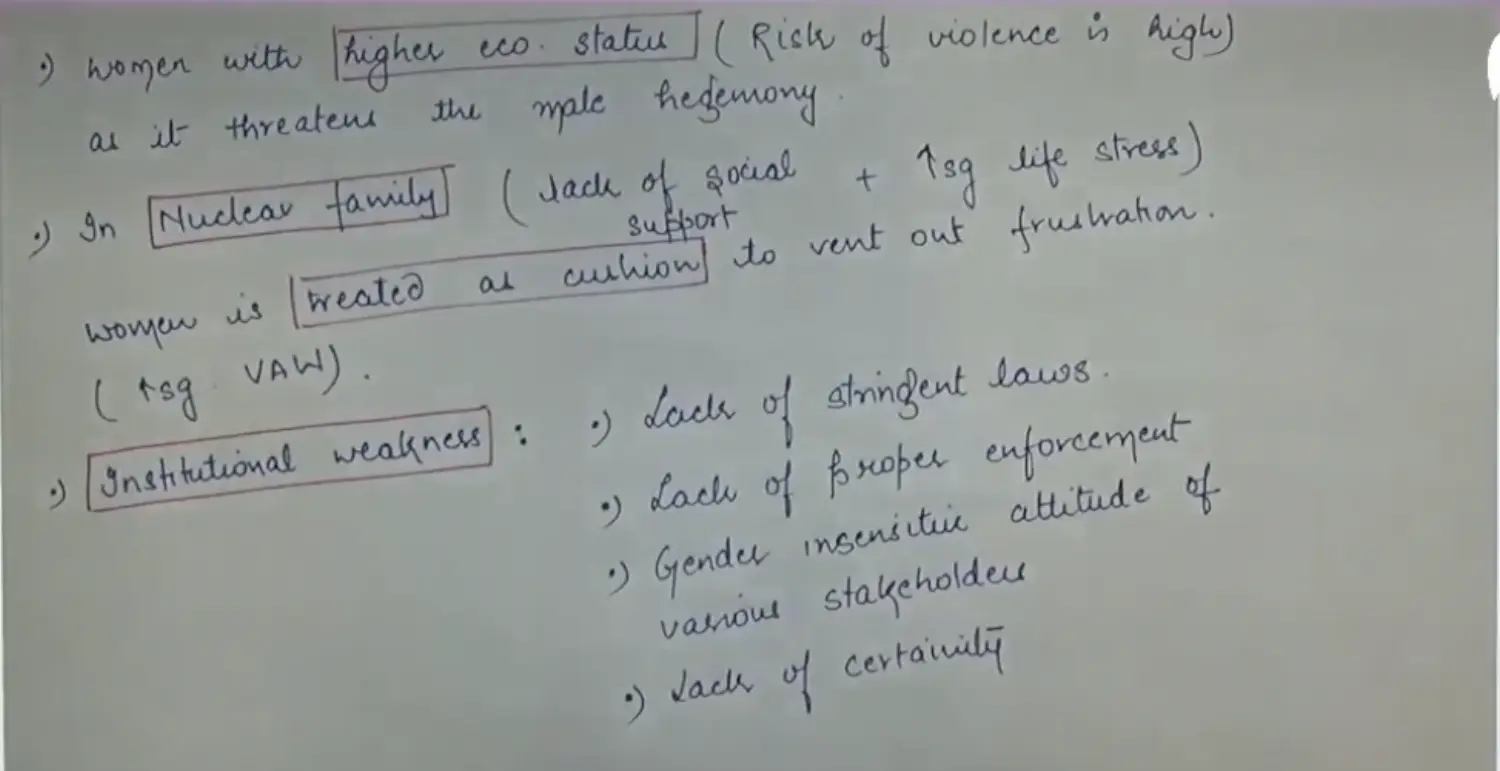 •) women with higher eco. status (Risk of violence is high)
as it threatens the male hegemony.
•) In Nuclear family (lack of social support + ↑sg life stress)
women is treated as cushion to vent out frustration.
(↑sg VAW).
•) Institutional weakness : •) Lack of stringent laws.
•) Lack of proper enforcement
•) Gender insensitive attitude of
various stakeholders
•) Lack of certainity